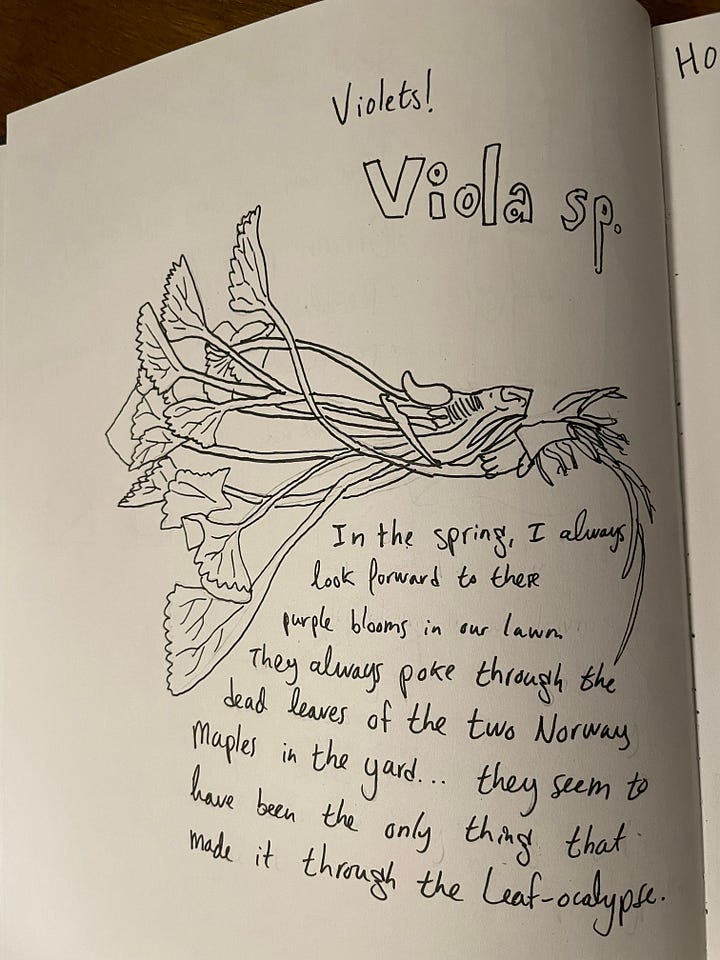 Violets!
HO
Viola sp.
In the spring, I always
look forward to these
purple blooms in our lawn.
They always poke through the
dead leaves of the two Norway
Maples in the yard... they seem to
have been the only thing that
made it through the Leaf-ocalypse.